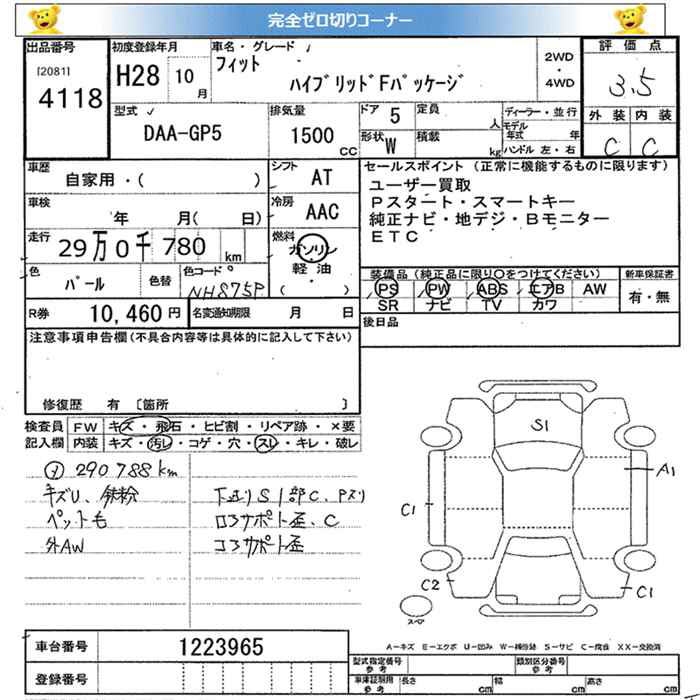 完全ゼロ切りコーナー
出品番号
[2081]
4118
初度登録年月
H28 10月
車名・グレード
フィット
ハイブリッドFパッケージ
2WD
・
4WD
評価点
3.5
外装 内装
C C
型式
DAA-GP5
排気量
1500 CC
ドア 5
形状 W
定員 人
積載 kg
ディーラー・並行
モデル年式 年
ハンドル 左・右
車歴
自家用・( )
シフト
AT
車検
年 月( 日)
冷房
AAC
走行
29万0千780 km
燃料
ガソリン
軽油
( )
色
パール
色替
色コード
NH875P
セールスポイント (正常に機能するものに限ります)
ユーザー買取
Pスタート・スマートキー
純正ナビ・地デジ・Bモニター
ETC
装備品(純正品に限り○をつけてください)
PS PW ABS エアB AW
SR ナビ TV カワ
新車保証書
有・無
R券 10,460円
名変通知期限 月 日
後日品
注意事項申告欄(不具合内容等は具体的に記入して下さい)
修復歴 有 [箇所 ]
検査員記入欄
FW キズ・飛石・ヒビ割・リペア跡・×要
内装 キズ・汚レ・コゲ・穴・スレ・キレ・破レ
メ 290788km
キズU、鉄粉
ペット毛
外AW
下廻りS1部C、Pスリ
ロアサポート歪、C
コアサポート歪
S1
A1
C1
C2
C1
スペア
A―キズ E―エクボ U―凹み W―補修跡 S―サビ C―腐食 XX―交換済
車台番号 1223965
登録番号
型式指定番号
参考
類別区分番号
参考
車庫証明用
参考
長さ cm
幅 cm
高さ cm